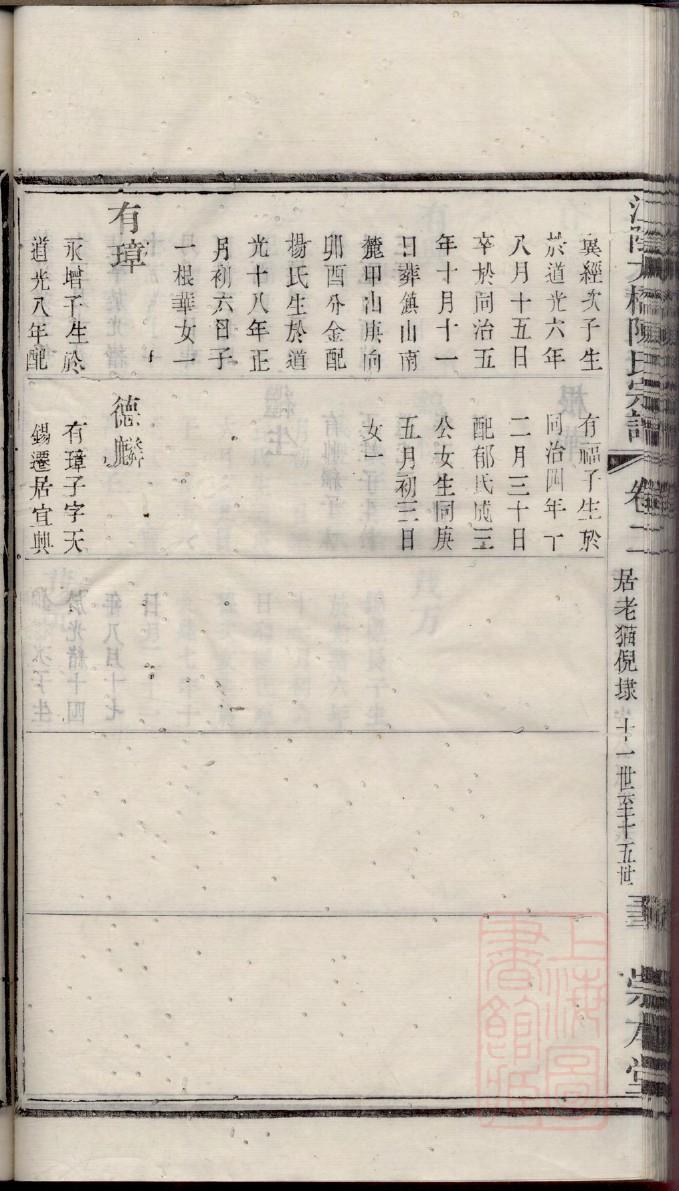 江陰大橋陳氏宗譜
卷二
居老猫倪埭
十一世至十五世
崇本堂
巽經次子生
於道光六年
八月十五日
卒於同治五
年十月十一
日葬鎮山南
麓甲山庚向
卯酉分金配
楊氏生於道
光十八年正
月初六日子
一根華女一
有璋
永增子生於
道光八年配
有福子生於
同治四年丁
二月三十日
配郁氏成三
公女生同庚
五月初三日
女一
德麟
有璋子字天
錫遷居宜興
上海圖書館藏